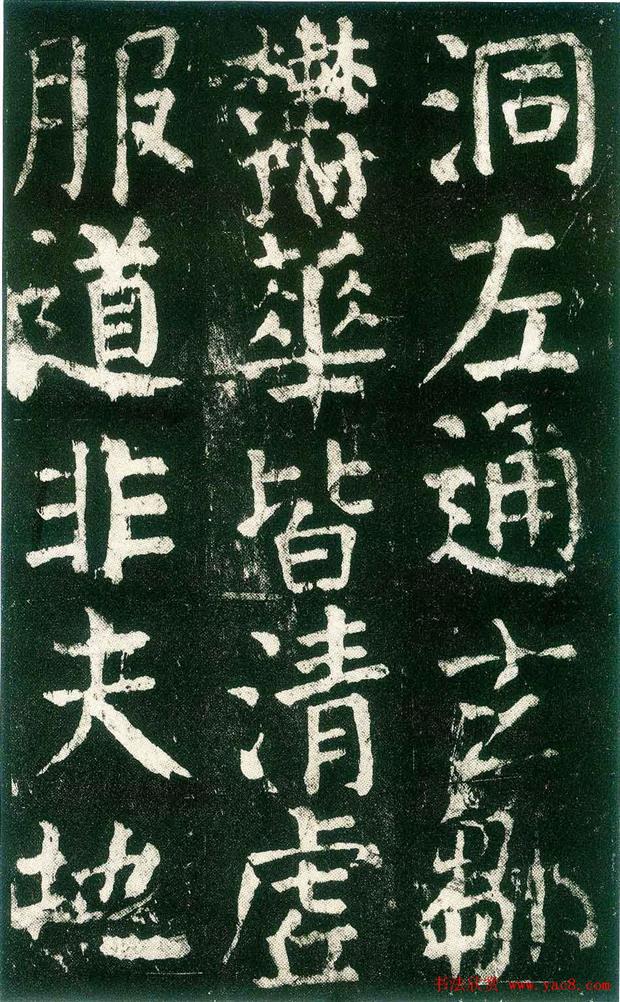 洞左通玄鄒
鬱華皆清虛
服道非夫地
书法欣赏 www.yac8.com